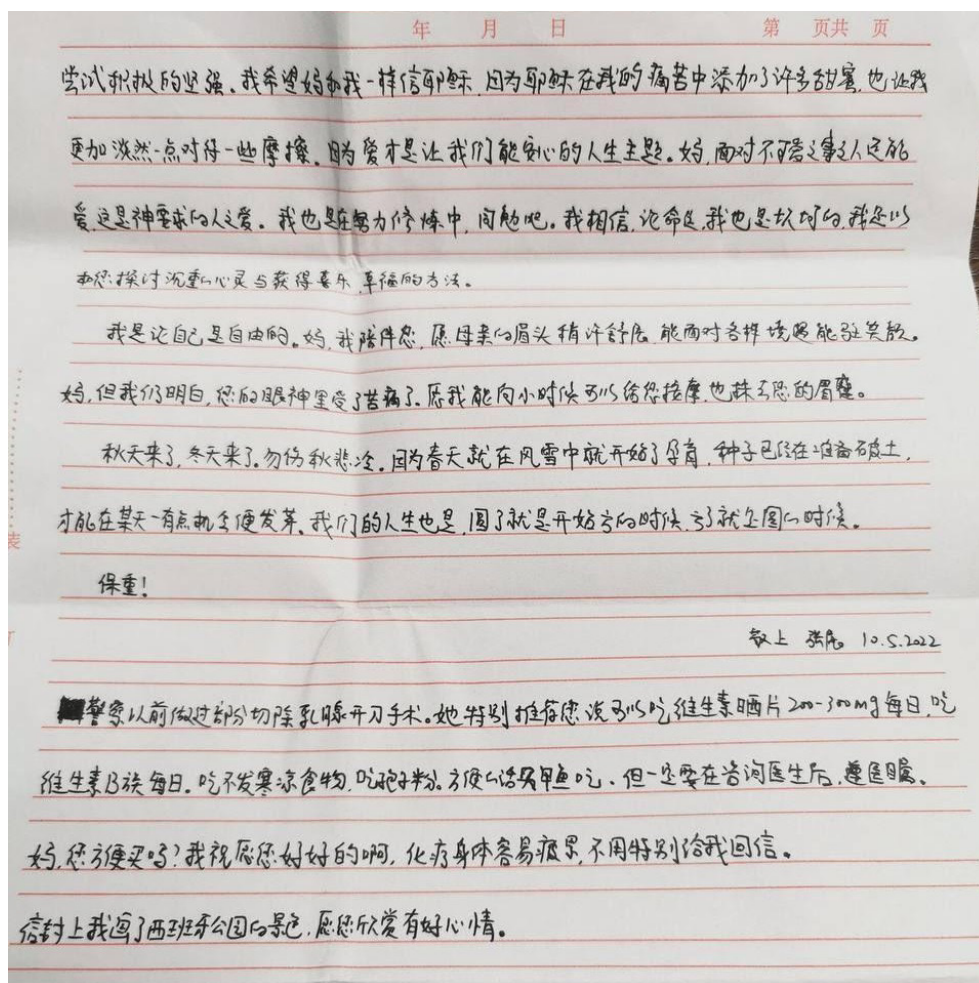 年 月 日 第 页共 页
尝试积极的坚强。我希望妈和我一样信耶稣,因为耶稣在我的痛苦中添加了许多甜蜜,也让我
更加淡然一点对待一些摩擦,因为爱才是让我们能安心的人生主题。妈,面对不可爱之事之人还能
爱,这是神要求的人之爱。我也是在努力修炼中,同勉吧。我相信,论命运,我也是坎坷的,我足以
和您探讨沉重的心灵与获得喜乐、幸福的方法。
我是让自己是自由的。妈,我陪伴您,愿母亲的眉头稍许舒展,能面对各样境遇能驻笑颜。
妈,但我们明白,您的眼神里受了苦痛了。愿我能向小时候可以给您按摩,也抹去您的眉蹙。
秋天来了,冬天来了。勿伤秋悲冷。因为春天就在风雪中就开始了孕育,种子已经在准备破土,
才能在某天一有点机会便发芽。我们的人生也是,圆了就是开始亏的时候,亏了就是圆的时候。
保重!
敬上 张展 10.5.2022
警察以前做过部分切除乳腺开刀手术。她特别推荐您说可以吃维生素硒片200-300mg每日,吃
维生素B族每日。吃不发寒凉食物,吃孢子粉。方便的话买甲鱼吃。但一定要在咨询医生后,遵医嘱。
妈,您方便买吗?我祝愿您好好的啊,化疗身体容易疲累,不用特别给我回信。
信封上我画了西班牙公园的景色,愿您欣赏有好心情。
装